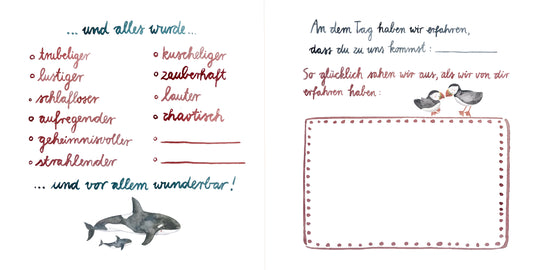 ... und alles wurde...
trubeliger
lustiger
schlafloser
aufregender
geheimnisvoller
strahlender
kuscheliger
zauberhaft
lauter
chaotisch
... und vor allem wunderbar!
An dem Tag haben wir erfahren,
dass du zu uns kommst:
So glücklich sahen wir aus, als wir von dir
erfahren haben: